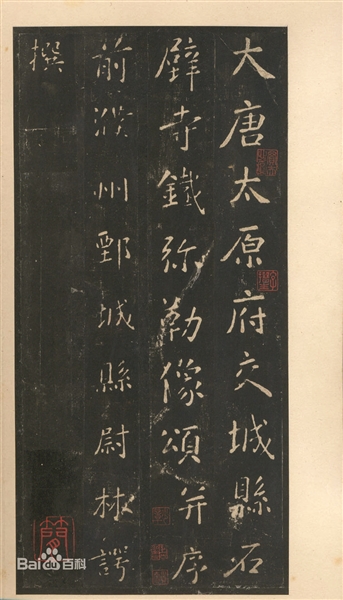 大唐太原府交城縣石
壁寺鐵弥勒像頌并序
前濮州鄄城縣尉林諤
撰
Bai百科